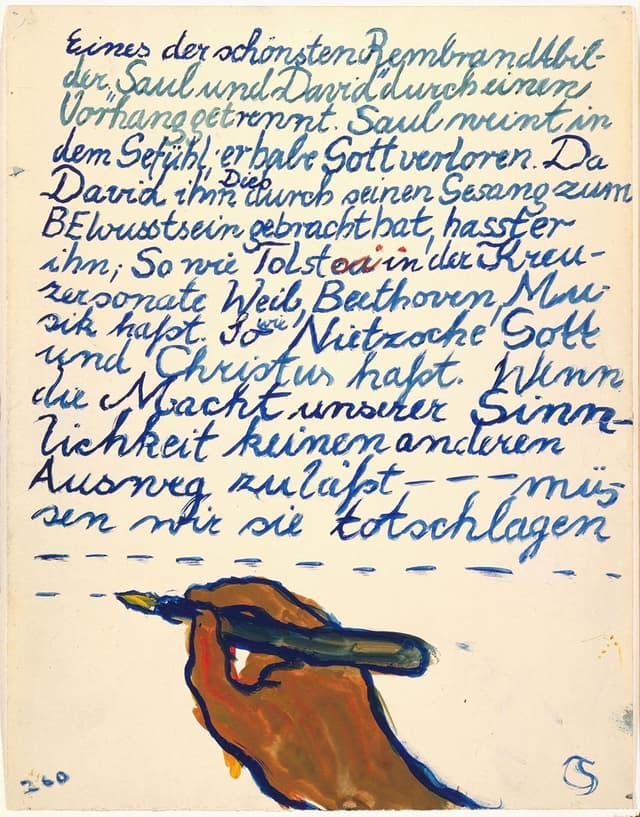 Eines der schönsten Rembrandtbil-
der "Saul und David" durch einen
Vorhang getrennt. Saul weint in
dem Gefühl: er habe Gott verloren. Da
David ihm Dies durch seinen Gesang zum
BEwusstsein gebracht hat, hasst er
ihn; So wie Tolstoi in der Kreu-
zersonate Weib, Beethoven, Mu-
sik haßt. So wie Nietzsche Gott
und Christus haßt. Wenn
die Macht unserer Sinn-
lichkeit keinen anderen
Ausweg zuläßt – – – müs
sen wir sie totschlagen
260
CS